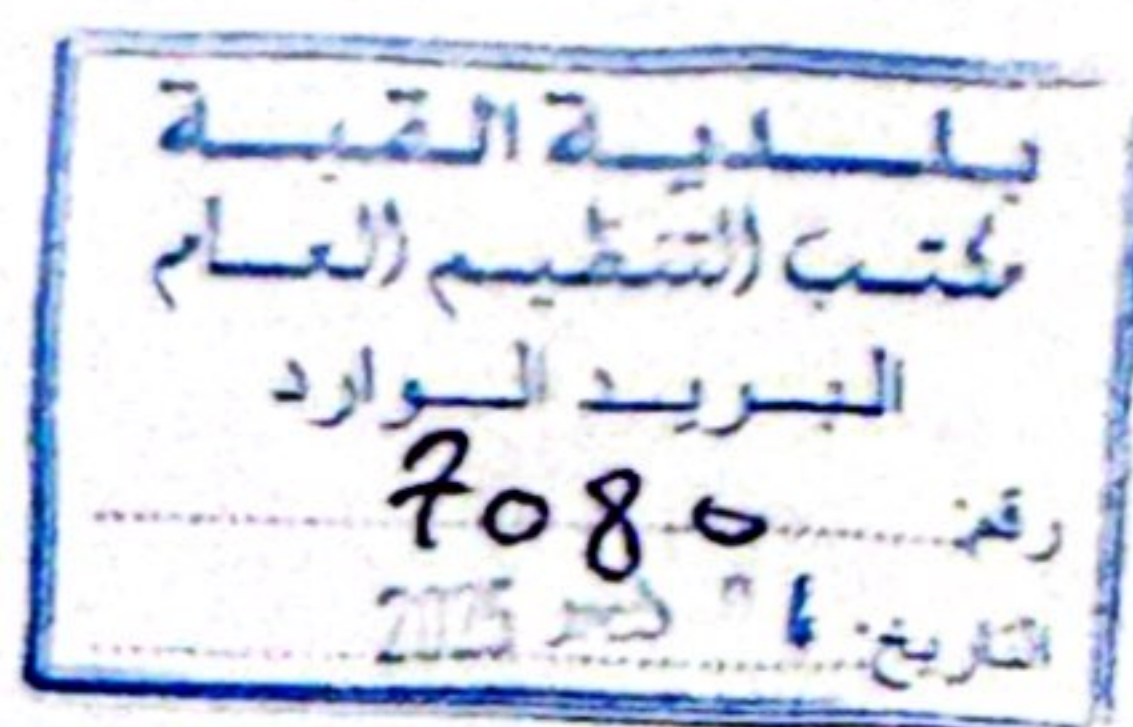 بلدية القبة
مكتب التنظيم العام
البريد الوارد
رقم: 7080
التاريخ: 2025